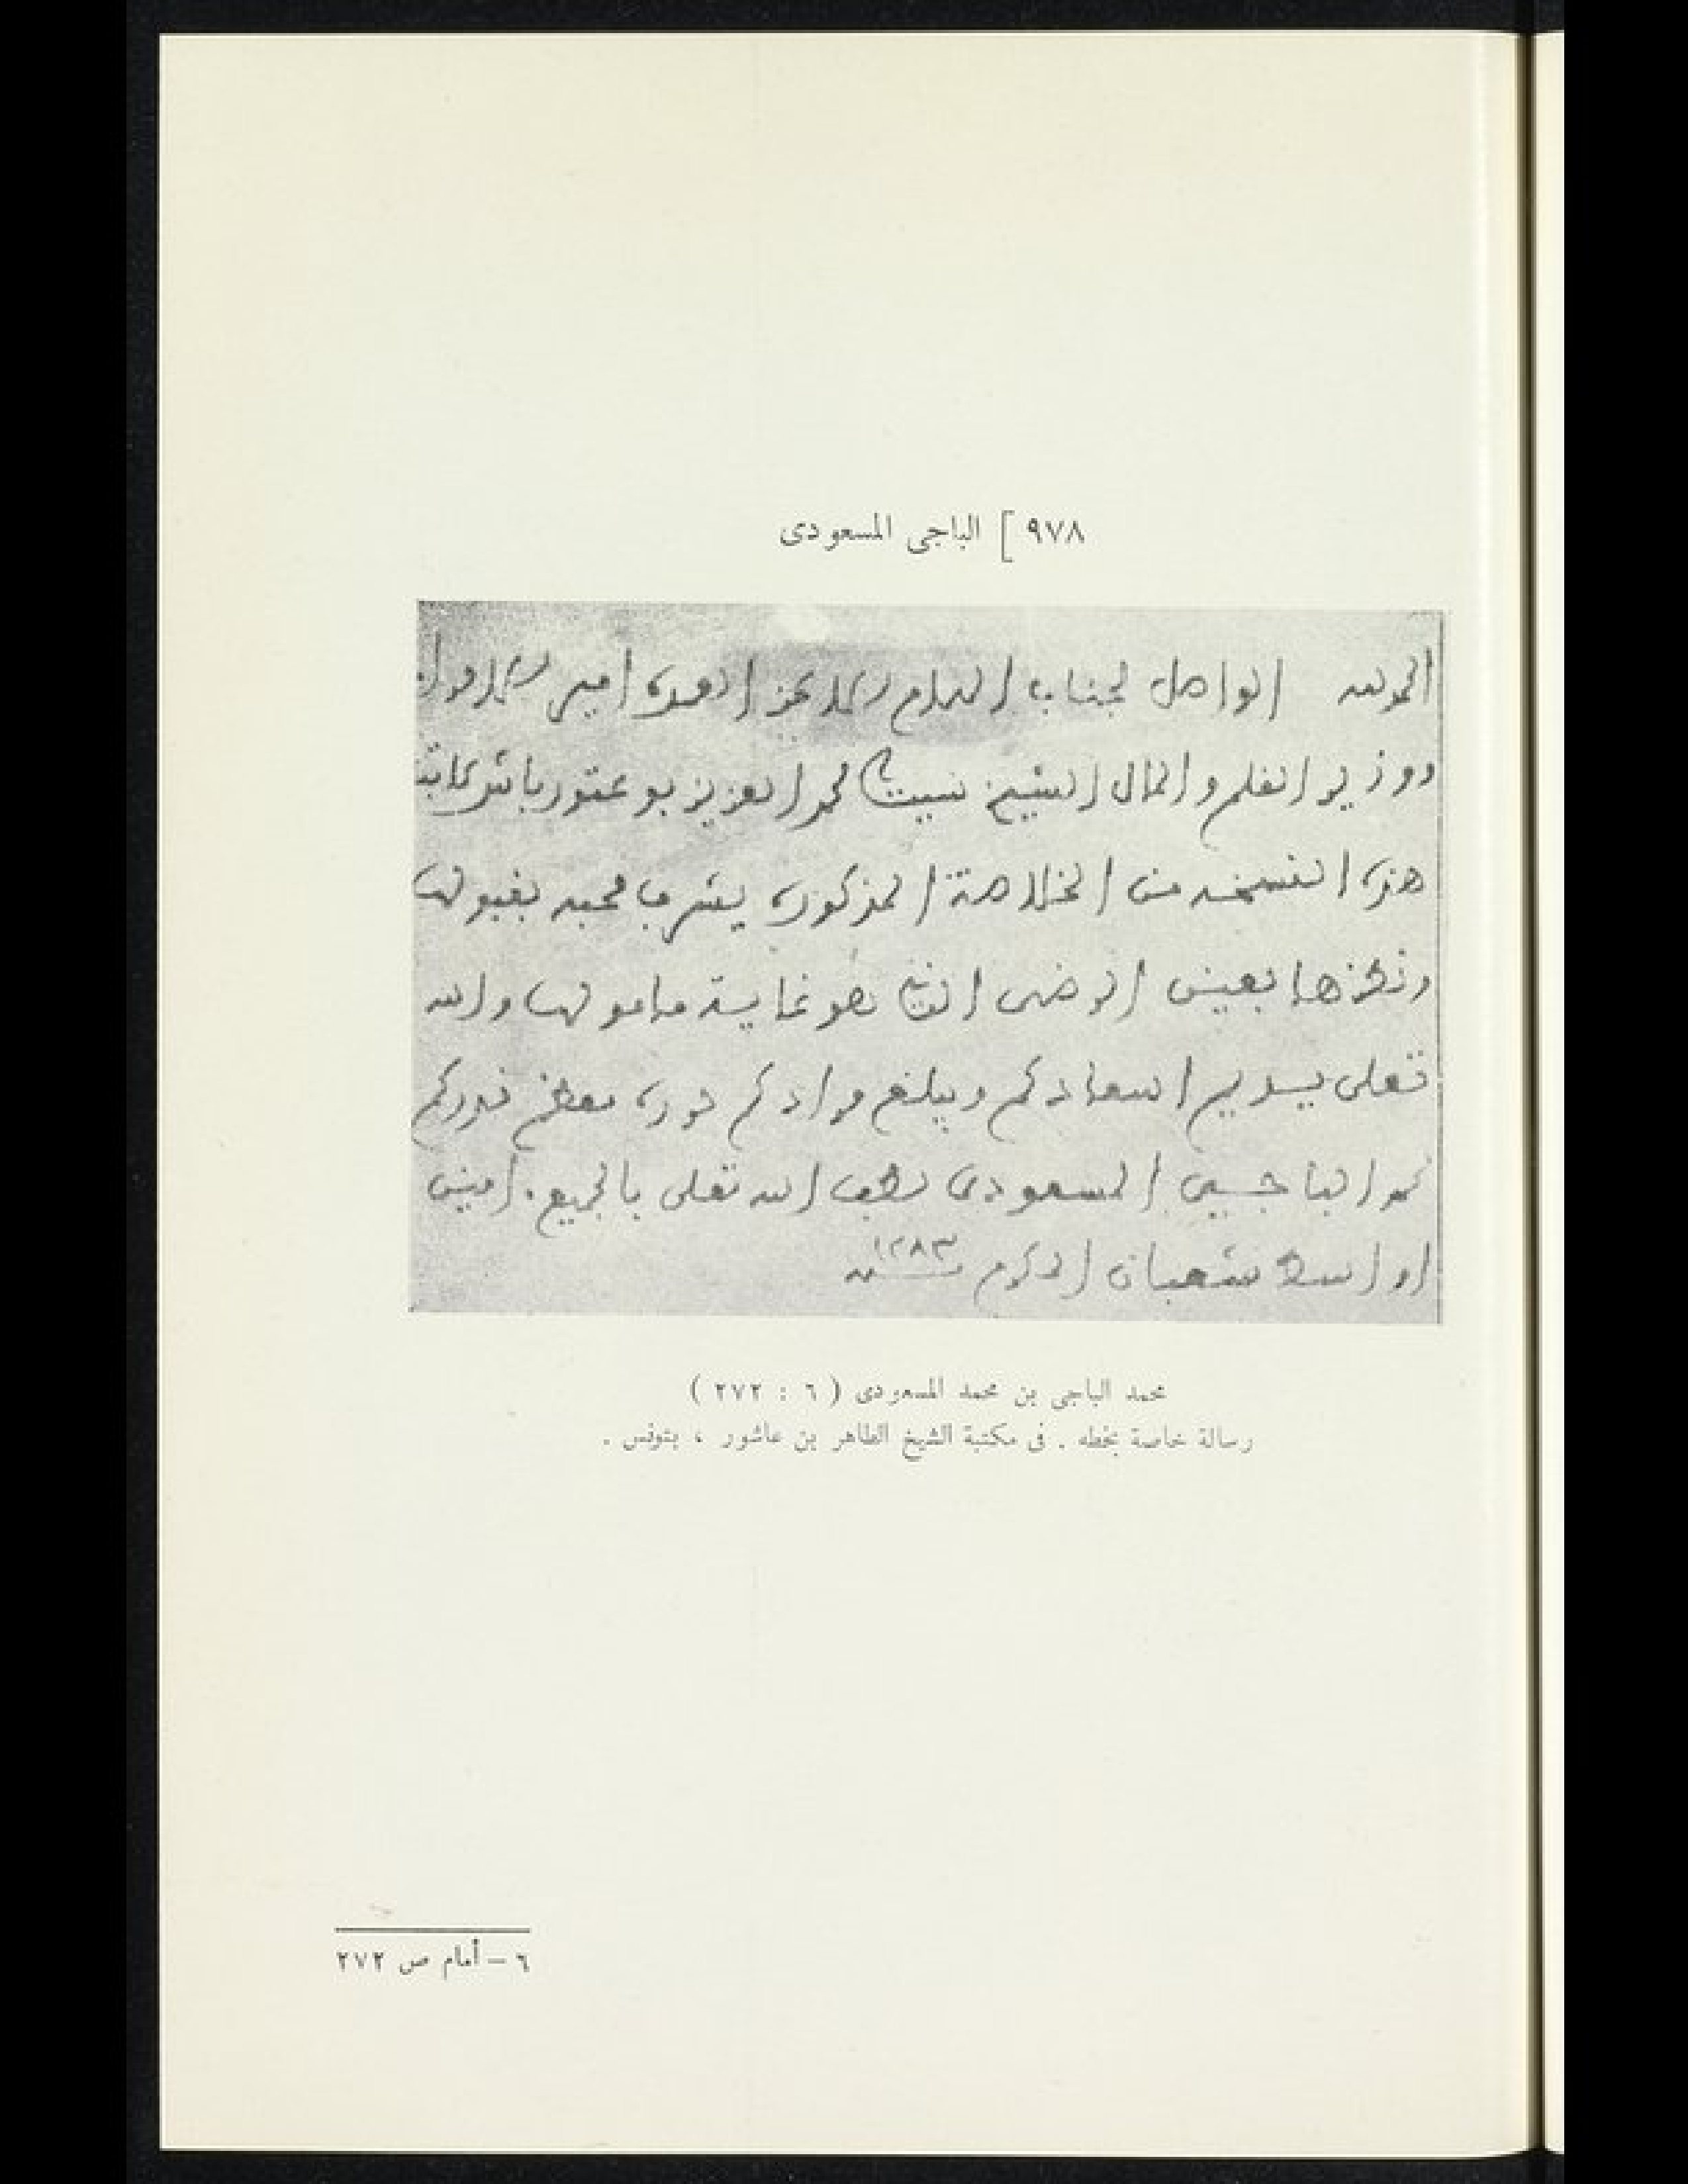 ٩٧٨ [ الباجى المسعودى
الحمد لله الواصل لجناب الهمام الاعز العمدة امير الامرا
ووزير القلم والمال الشيخ سيدي محمد العزيز بوعتور باش كاتب
هذه النسخه من الخلاصة المذكورة يشرف محبه بقبولها
ونظرها بعين الرضى الذي هو غاية مامولها والله
تعلى يديم اسعادكم ويبلغ مرادكم معظم قدركم
محمد الباجي المسعودي لطف الله تعلى بالجميع . امين
اواسط شعبان الاكرم سنة ١٢٨٣
محمد الباجى بن محمد المسعودى ( ٦ : ٢٧٢ )
رسالة خاصة بخطه . فى مكتبة الشيخ الطاهر بن عاشور ، بتونس .
٦ – أمام ص ٢٧٢